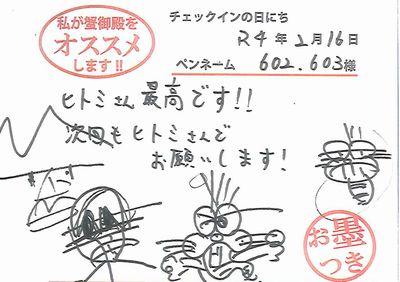 私が蟹御殿を
オススメ
します!!
チェックインの日にち
R4年2月16日
ペンネーム 602.603様
ヒトミさん最高です!!
次回もヒトミさんで
お願いします!
お墨
つき